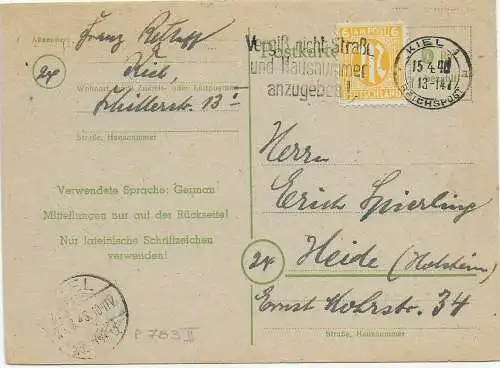 Absender:
Franz
24
Kiel,
Wohnort, auch Zustell- oder Leitpostamt
Schillerstr. 13 I
Straße, Hausnummer
Verwendete Sprache: German
Mitteilungen nur auf der Rückseite!
Nur lateinische Schriftzeichen
verwenden!
P 783 II
Postkarte
Vergiß nicht Straße
und Hausnummer
anzugeben!
6 AM POST 6
DEUTSCHLAND
KIEL 1
15.4.46
13-14
REICHSPOST
Herrn
Erich Spierling
24
Heide (Holstein)
Ernst Mohrstr. 34
Straße, Hausnummer